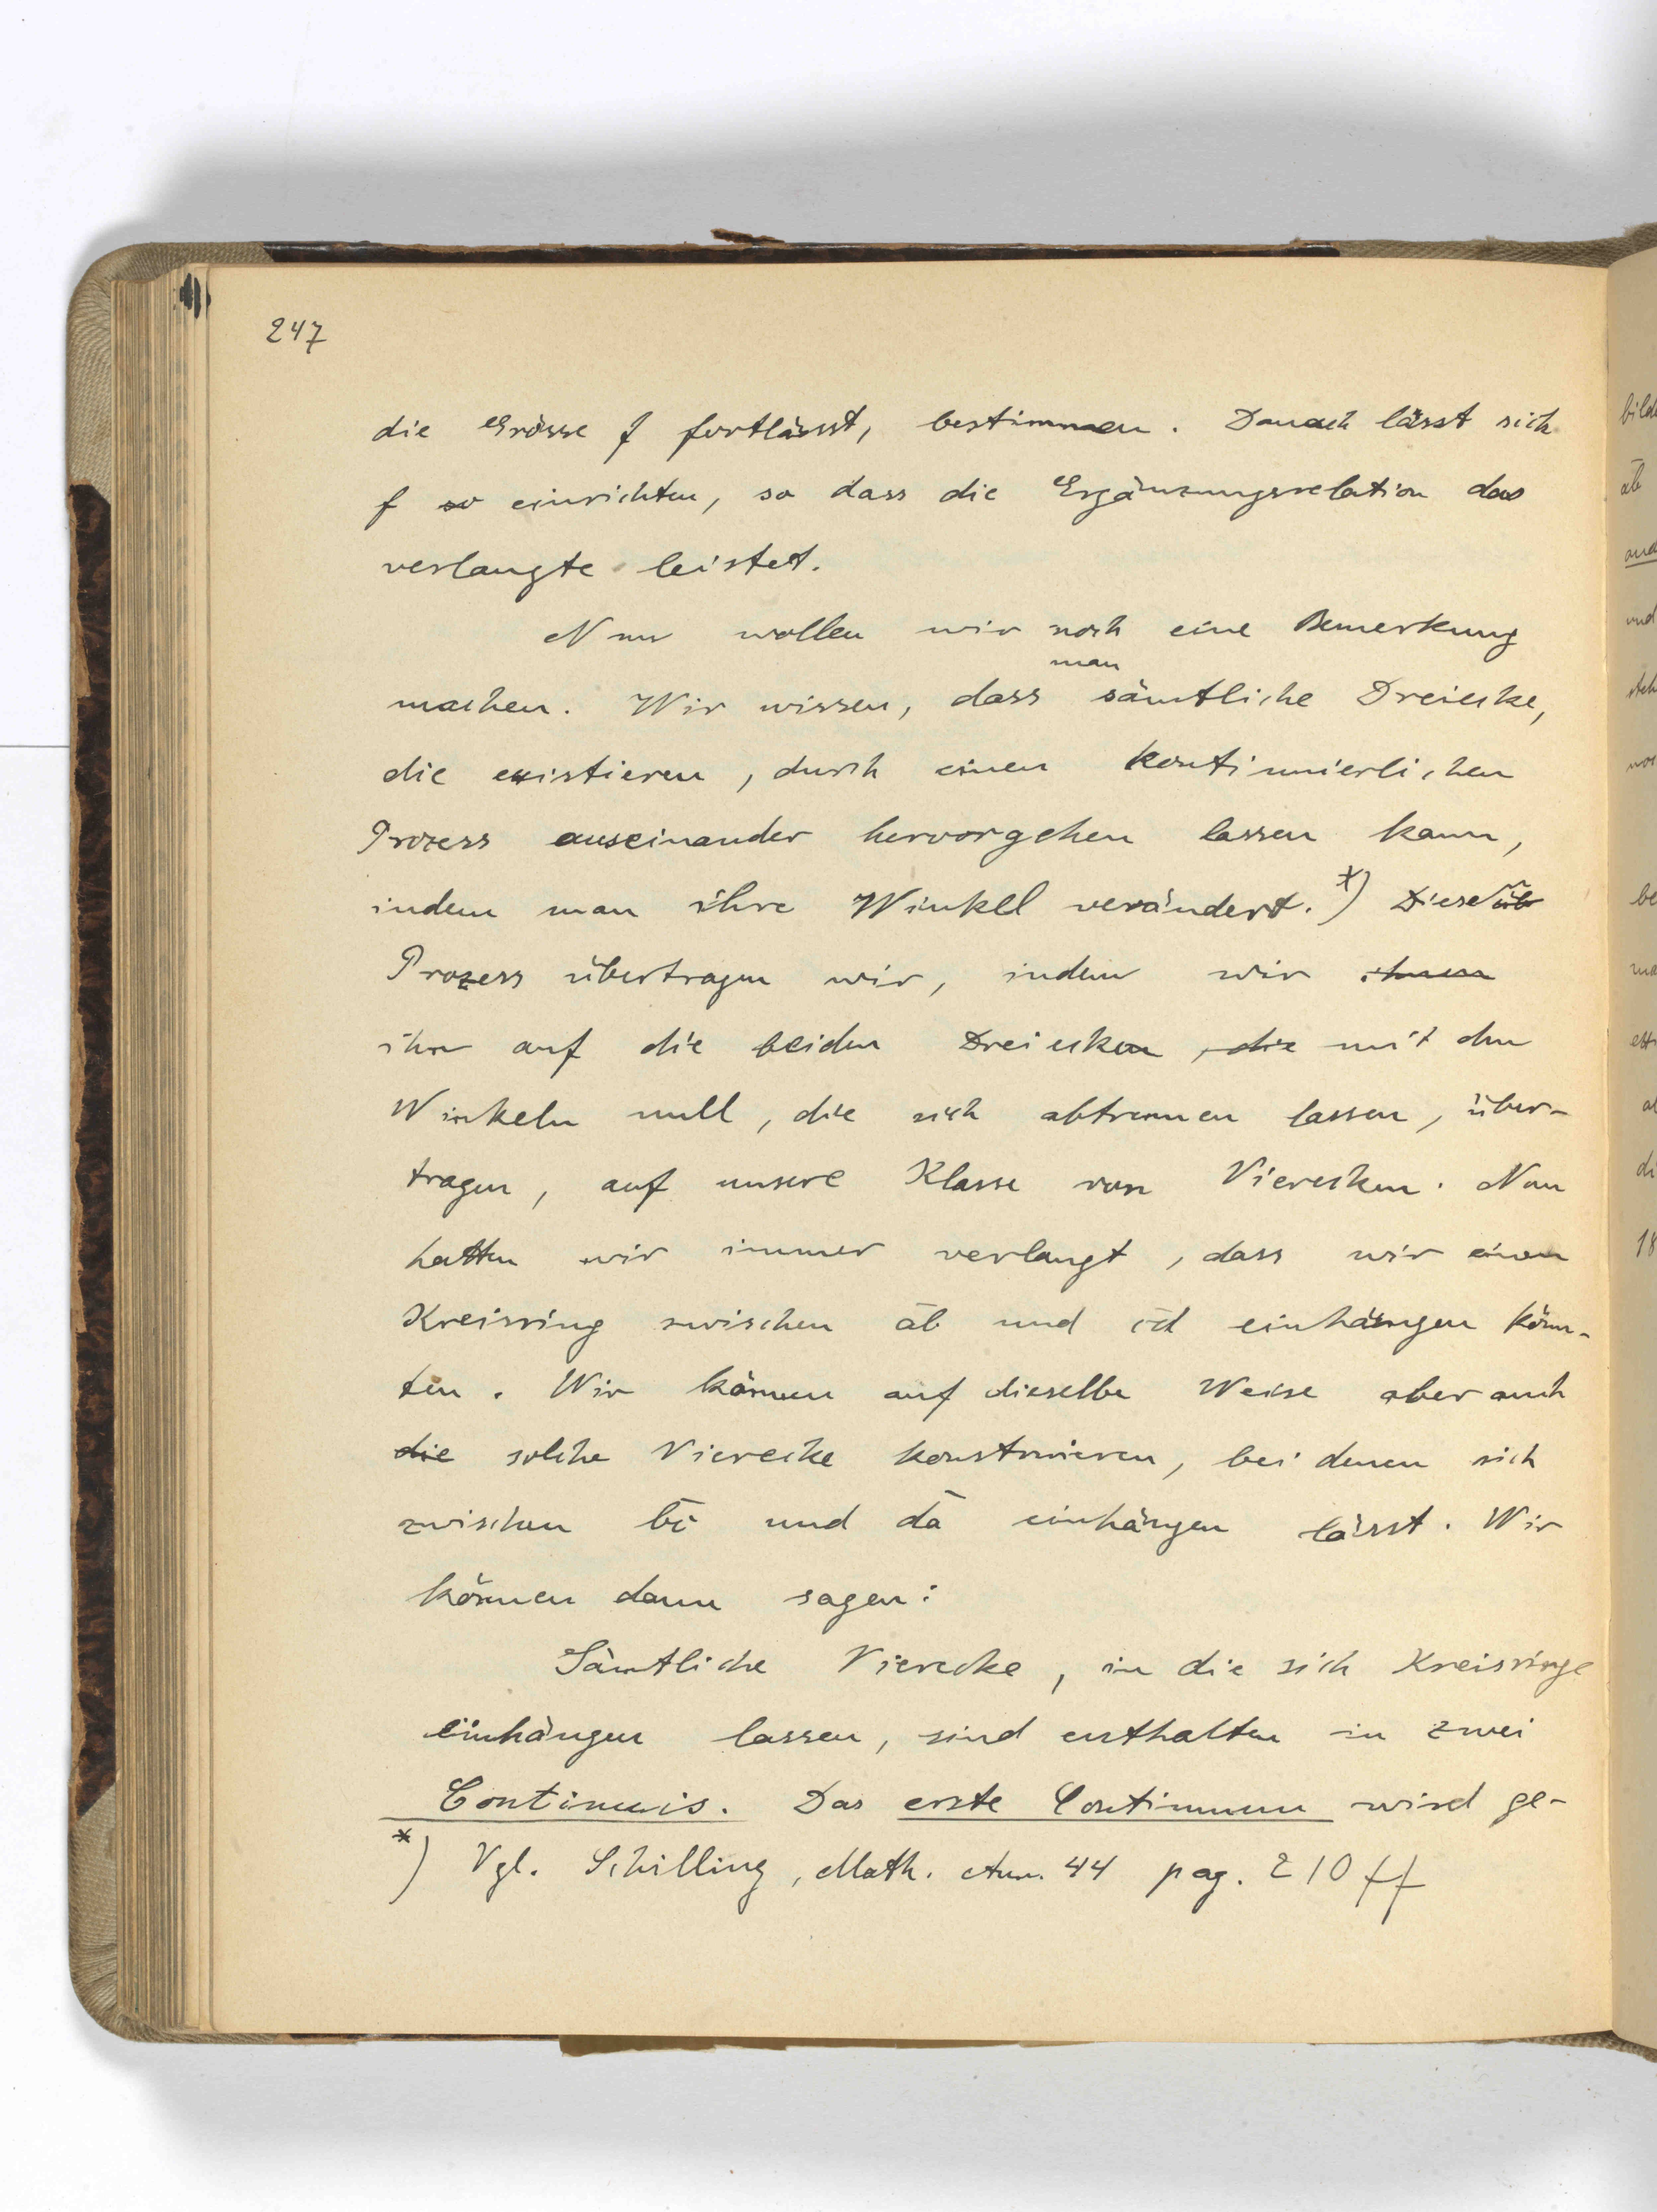 247
die Grösse f fortlässt, bestimmen. Danach lässt sich
f so einrichten, so dass die Ergänzungsrelation das
verlangte leistet.
Nun wollen wir noch eine Bemerkung
man
machen. Wir wissen, dass sämtliche Dreiecke,
die existieren, durch einen kontinuierlichen
Prozess auseinander hervorgehen lassen kann,
indem man ihre Winkel verändert.*) Diesen
Prozess übertragen wir, indem wir
ihn auf die beiden Dreiecke, die mit den
Winkeln null, die sich abtrennen lassen, über-
tragen, auf unsere Klasse von Vierecken. Nun
hatten wir immer verlangt, dass wir einen
Kreisring zwischen āb und c̄d einhängen könn-
ten. Wir können auf dieselbe Weise aber auch
die solche Vierecke konstruieren, bei denen sich
zwischen b̄c und dā einhängen lässt. Wir
können dann sagen:
Sämtliche Vierecke, in die sich Kreisringe
einhängen lassen, sind enthalten in zwei
Continuis. Das erste Continuum wird ge-
*) Vgl. Schilling, Math. Ann. 44 pag. 210 ff